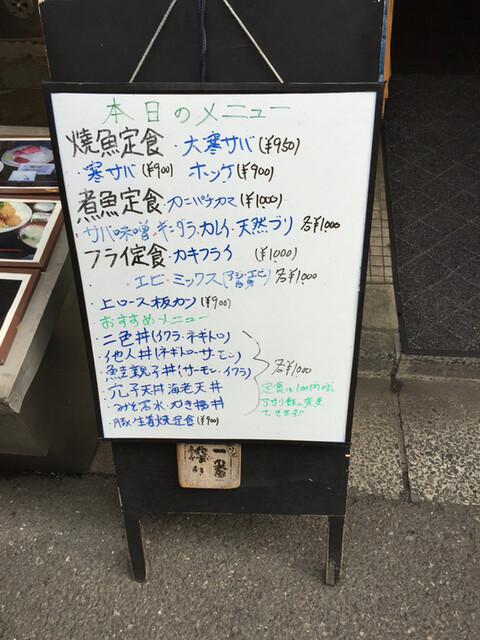 本日のメニュー
焼魚定食・大寒サバ(¥950)
・寒サバ(¥900) ホッケ(¥900)
煮魚定食・カンパチカマ(¥1000)
サバ味噌・ギンダラ・カレイ・天然ブリ 各¥1000
フライ定食・カキフライ (¥1000)
・エビ・ミックス(アジ・エビ 各¥1000
・上ロース板カツ(¥900)
おすすめメニュー
・二色丼(イクラ・ネギトロ)
・他人丼(ネギトロ・サーモン)
・鮭親子丼(サーモン・イクラ) 各¥1000
・穴子天丼 海老天丼
・かき揚丼
・豚生姜焼定食(¥900)
定食は100円
アサリ飯に変更
できます!!
一番